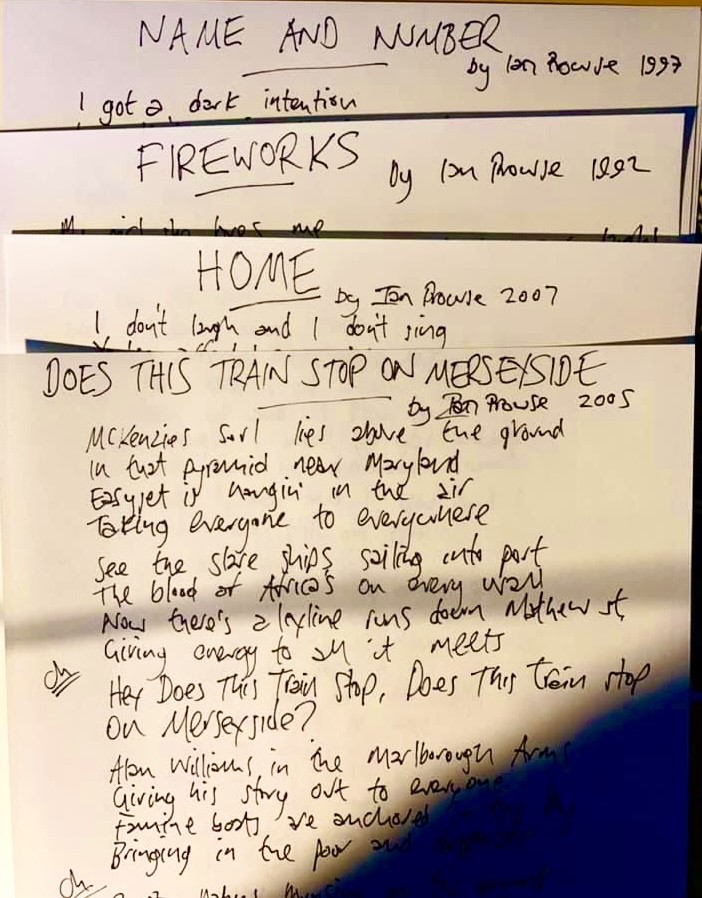 NAME AND NUMBER
by Ian Prowse 1997
I got a dark intention
FIREWORKS
by Ian Prowse 1992
me
HOME
by Ian Prowse 2007
I don't laugh and I don't sing
DOES THIS TRAIN STOP ON MERSEYSIDE
by Ian Prowse 2005
McKenzies Soul lies above the ground
in that pyramid near Maryland
Easyjet is hangin' in the air
Taking everyone to everywhere
See the slave ships sailing into port
The blood of Africa's on every wall
Now there's a leyline runs down Mathew st
Giving energy to all it meets
Ch
Hey Does This Train Stop, Does This Train stop
on Merseyside?
Alan Williams in the Marlborough Arms
Giving his story out to everyone
Famine boats are anchored in the
Bringing in the poor and
Ch